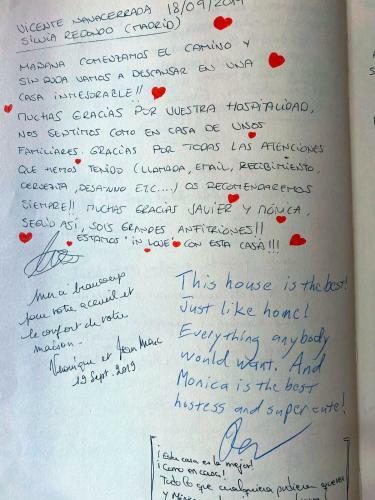 VICENTE MANACERRADA 18/09/2019
SILVIA REDONDO (MADRID)
MAÑANA COMENZAMOS EL CAMINO Y
SIN DUDA VAMOS A DESCANSAR EN UNA
CASA INMEJORABLE!!
MUCHAS GRACIAS POR VUESTRA HOSPITALIDAD,
NOS SENTIMOS COMO EN CASA DE UNOS
FAMILIARES. GRACIAS POR TODAS LAS ATENCIONES
QUE HEMOS TENIDO (LLAMADA, EMAIL, RECIBIMIENTO,
CERVECITA, DESAYUNO ETC...) OS RECOMENDAREMOS
SIEMPRE!! MUCHAS GRACIAS JAVIER Y MÓNICA,
SEGUID ASÍ, SOIS GRANDES ANFITRIONES!!
ESTAMOS "IN LOVE" CON ESTA CASA!!!
Merci beaucoup
pour votre accueil et
le confort de votre
maison.
Véronique et Jean Marc
19 Sept. 2019
This house is the best!
Just like home!
Everything anybody
would want. And
Monica is the best
hostess and super cute!
¡Esta casa es la mejor!
¡Como en casa!
Todo lo que cualquiera pudiera querer